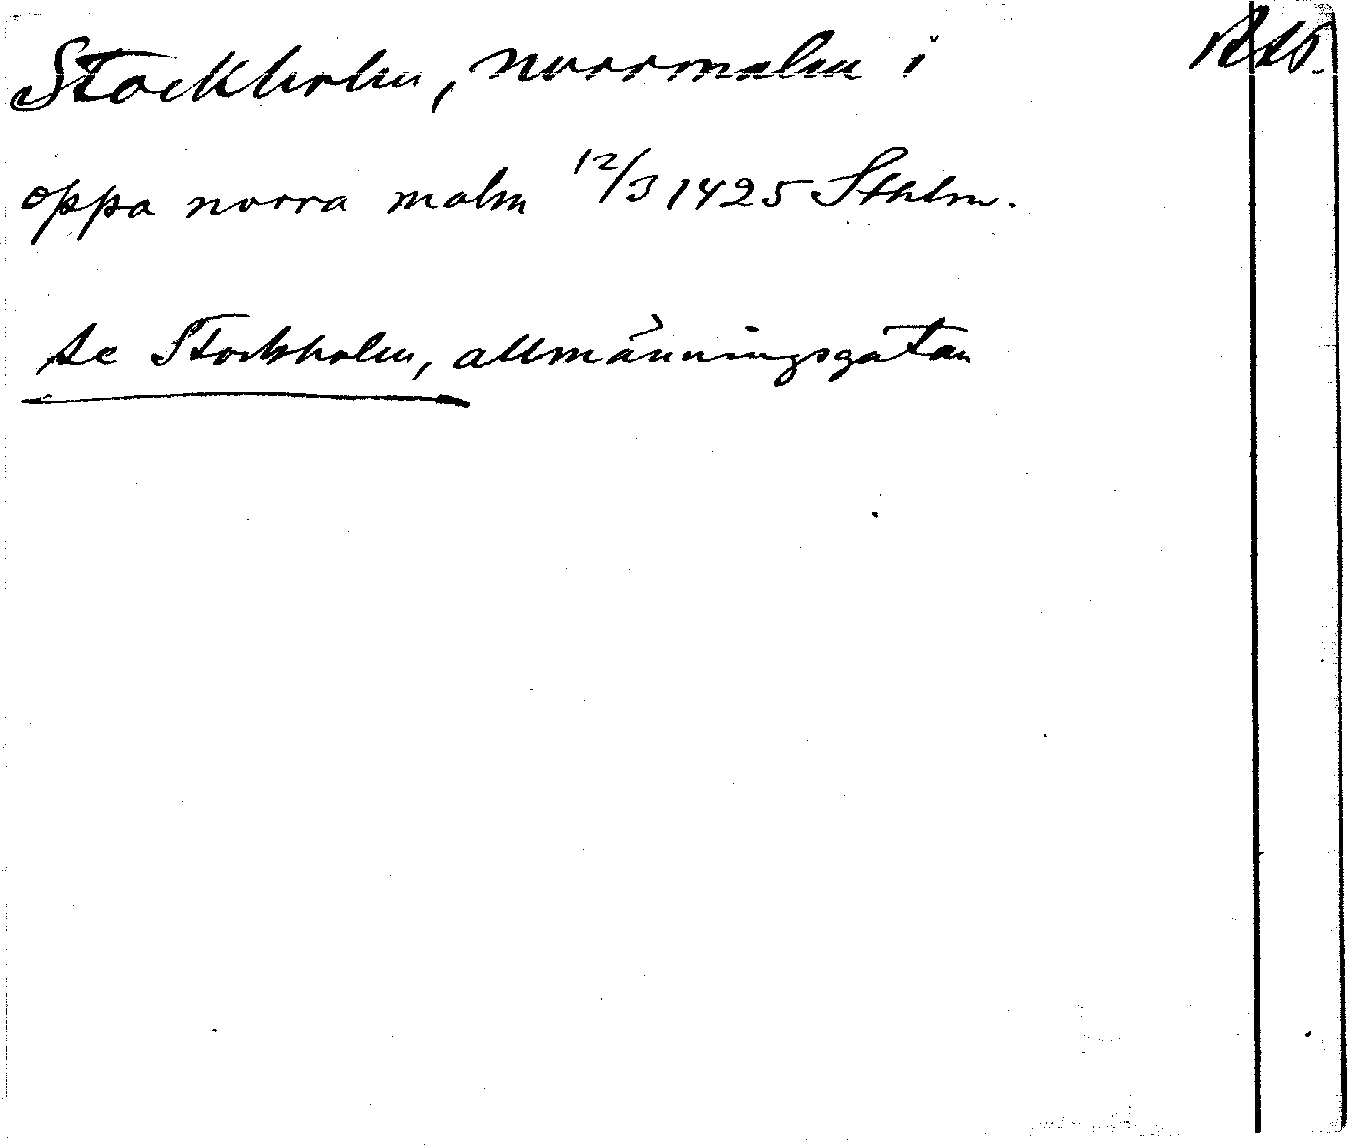 Stockholm, norrmalm i
oppa norra malm 12/3 1425 Sthlm.
se Stockholm, allmänningsgatan